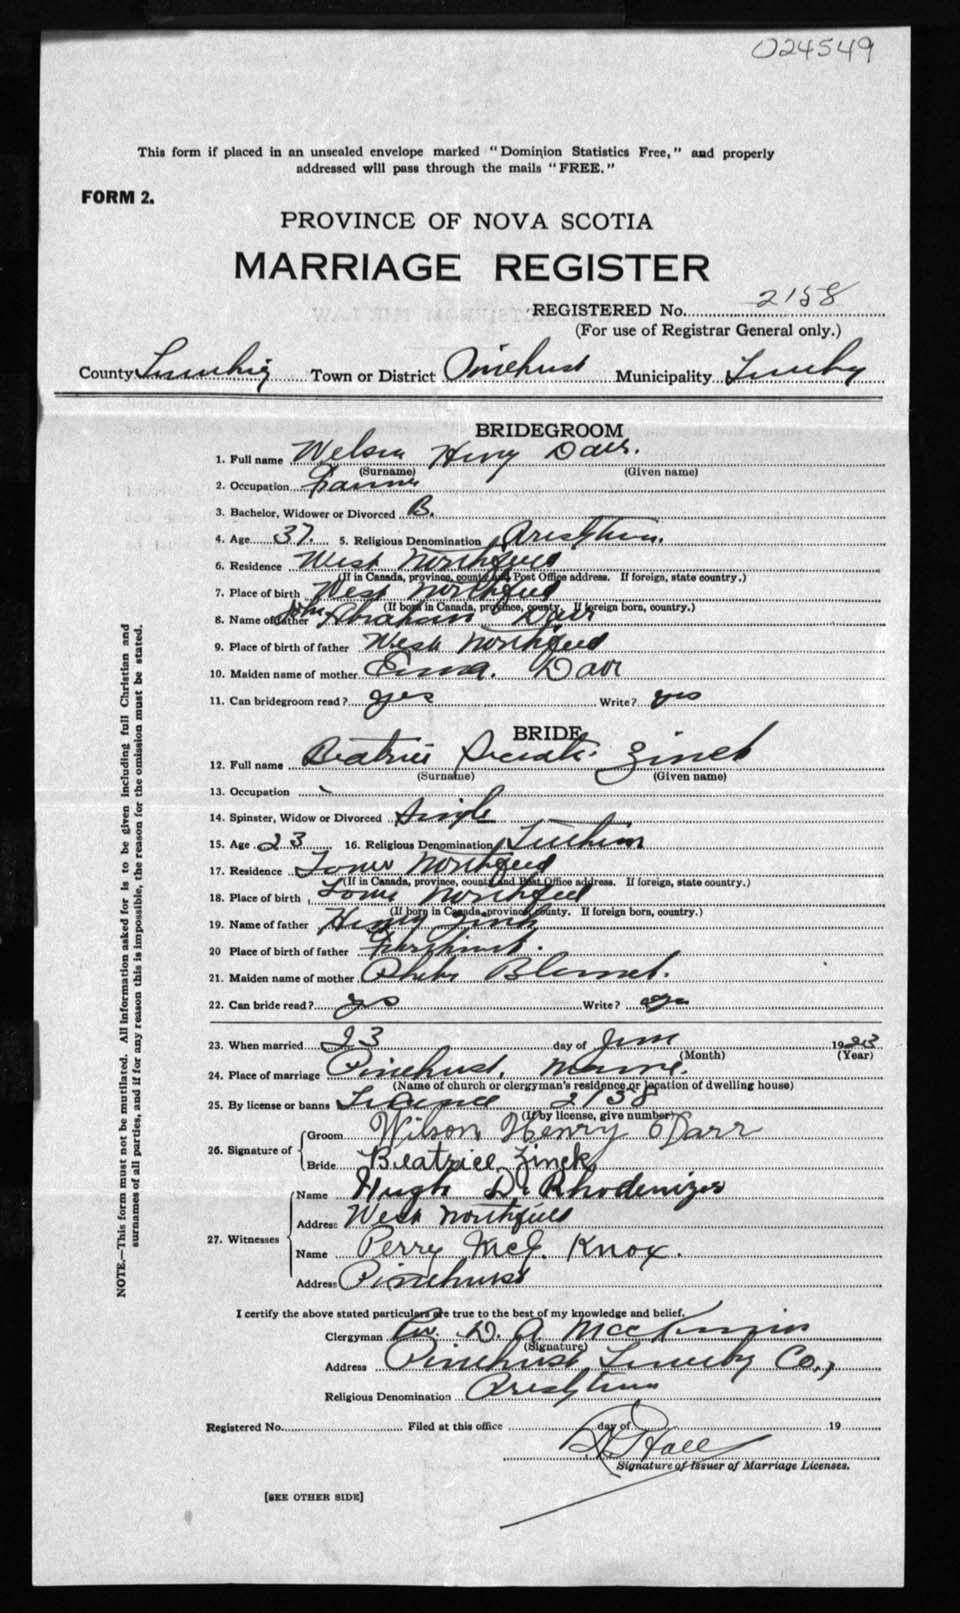 024549
This form if placed in an unsealed envelope marked "Dominion Statistics Free," and properly
addressed will pass through the mails "FREE."
FORM 2.
PROVINCE OF NOVA SCOTIA
MARRIAGE REGISTER
REGISTERED No. 2158
(For use of Registrar General only.)
County Town or District Pinehurst Municipality
BRIDEGROOM
1. Full name Welson Henry Darr.
(Surname) (Given name)
2. Occupation Farmer
3. Bachelor, Widower or Divorced B.
4. Age 37. 5. Religious Denomination
6. Residence West Northfield
(If in Canada, province, county and Post Office address. If foreign, state country.)
7. Place of birth West Northfield
(If born in Canada, province, county. If foreign born, country.)
8. Name of father John Abraham Darr
9. Place of birth of father West Northfield
10. Maiden name of mother Emma. Darr
11. Can bridegroom read? yes Write? yes
BRIDE
12. Full name Beatrice Zinck
(Surname) (Given name)
13. Occupation
14. Spinster, Widow or Divorced Single
15. Age 23 16. Religious Denomination
17. Residence Northfield
(If in Canada, province, county and Post Office address. If foreign, state country.)
18. Place of birth Northfield
(If born in Canada, province, county. If foreign born, country.)
19. Name of father Henry Zinck
20 Place of birth of father
21. Maiden name of mother
22. Can bride read? yes Write? yes
23. When married 23 day of 1923
(Month) (Year)
24. Place of marriage Pinehurst. Manse.
(Name of church or clergyman's residence, or location of dwelling house)
25. By license or banns License 2158
(If by license, give number)
26. Signature of Groom Wilson Henry Darr
Bride Beatrice Zinck
27. Witnesses Name Hugh D. Rhodenizer
Address West Northfield
Name Perry McG. Knox.
Address Pinehurst
I certify the above stated particulars are true to the best of my knowledge and belief.
Clergyman Rev. D. A. MacKinnon
(Signature)
Address Pinehurst Co.,
Religious Denomination
Registered No. Filed at this office day of 19
Signature of Issuer of Marriage Licenses.
[SEE OTHER SIDE]
NOTE.—This form must not be mutilated. All information asked for is to be given including full Christian and
surnames of all parties, and if for any reason this is impossible, the reason for the omission must be stated.